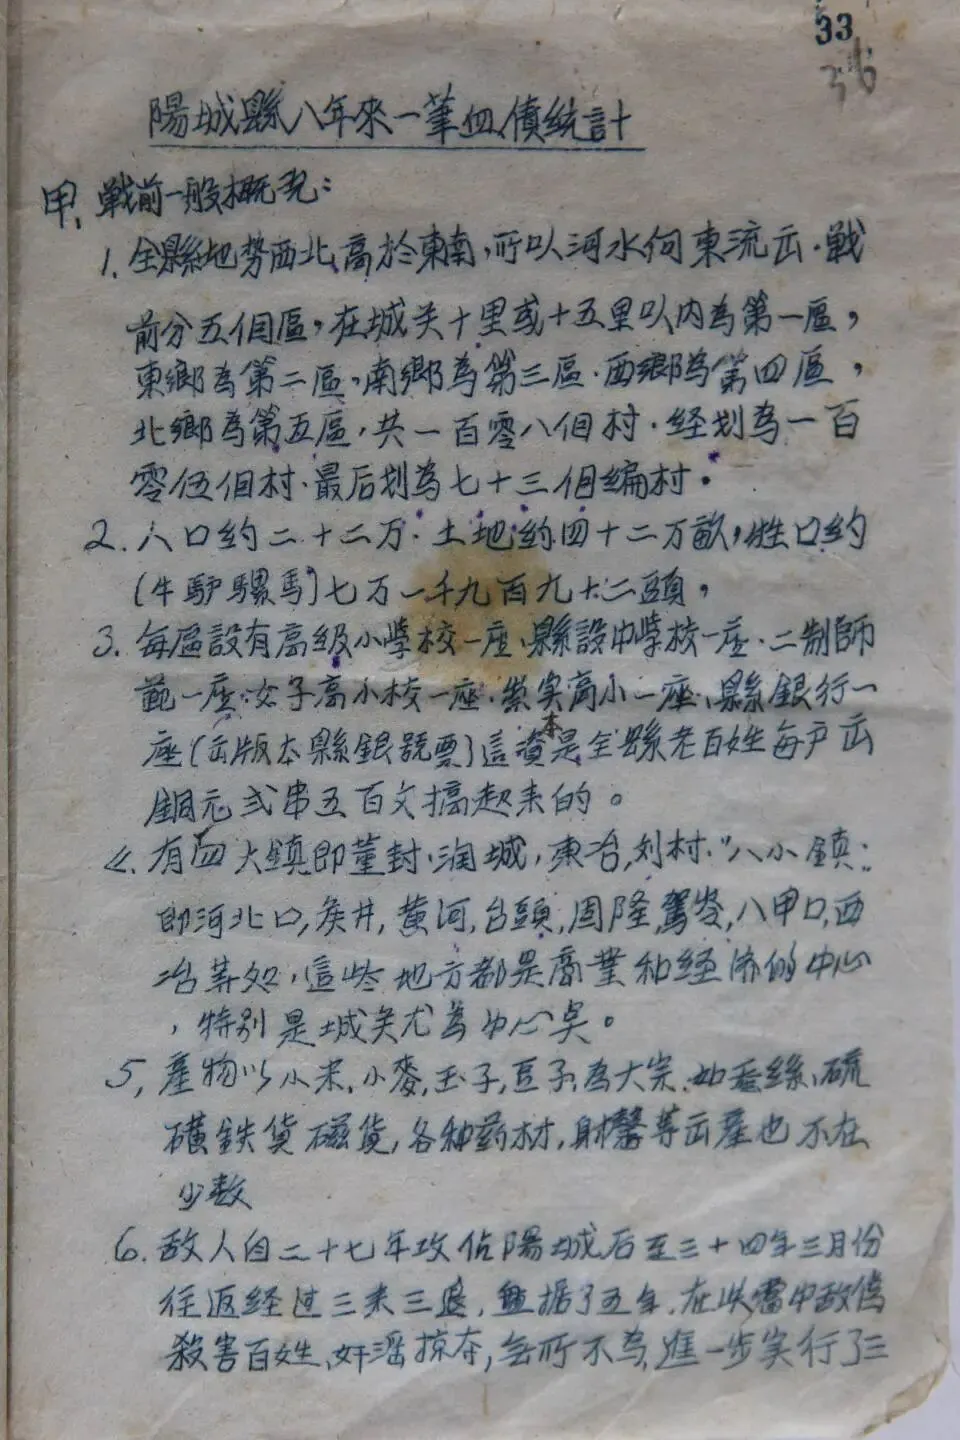 33
36
陽城縣八年來一筆血債統計
甲、戰前一般概況：
1. 全縣地势西北高於東南，所以河水向東流出．戰
前分五個區，在城关十里或十五里以内為第一區，
東鄉為第二區，南鄉為第三區．西鄉為第四區，
北鄉為第五區，共一百零八個村．経划為一百
零伍個村．最后划為七十三個编村．
2. 人口约二十二万．土地约四十二万畝，牲口约
(牛馿騾馬)七万一千九百九十二頭，
3. 每區設有高级小學校一座、縣設中學校一座．二制師
範一座．女子高小校一座．崇实高小一座、縣銀行一
座(出版本縣銀號票)這資本是全縣老百姓每户出
銅元弍串五百文搞起来的。
4. 有四大鎮即董封．润城，東冶，刘村．"八小鎮：
即河北口，矦井，黄河，台頭，周隆，駕嶺，八甲口，西
冶等处，這些地方都是商業和経济的中心
，特别是城关尤為中心矣。
5, 產物以小米，小麥，玉子，豆子為大宗．如蚕絲、硫
磺鉄貨磁貨，各种药材，射馨等出產也不在
少数
6. 敌人自二十七年攻佔陽城后至三十四年三月份
往返经过三来三退，盤据了五年．在此當中敌偽
殺害百姓、奸淫掠夺，無所不為，進一步实行了三